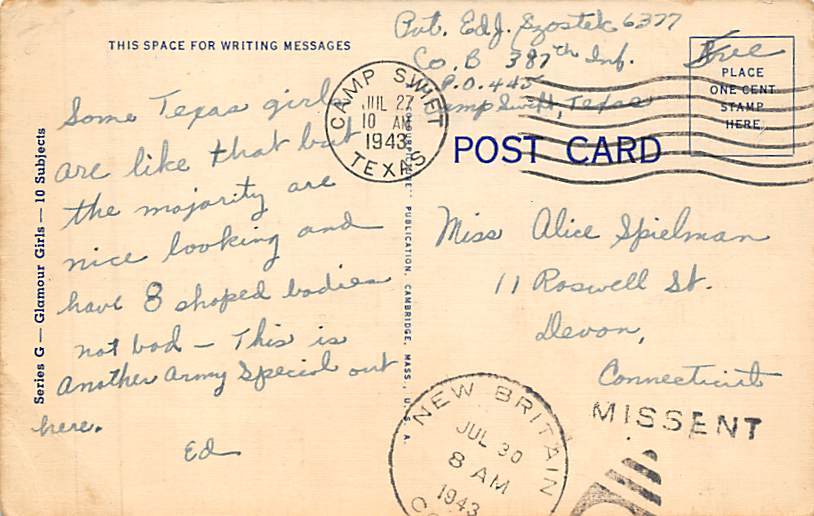 THIS SPACE FOR WRITING MESSAGES
Pvt. Ed J. Szostek 6377
Co. B 387th Inf.
A.P.O. 445
Camp Swift, Texas
Free
PLACE
ONE CENT
STAMP
HERE
CAMP SWIFT
JUL 27
10 AM
1943
TEXAS
POST CARD
Some Texas girls
are like that but
the majority are
nice looking and
have 8 shaped bodies
not bad – This is
Another Army Special out
here.
Ed
Series G — Glamour Girls — 10 Subjects
PUBLICATION, CAMBRIDGE, MASS., U. S. A.
Miss Alice Spielman
11 Roswell St.
Devon,
Connecticut
MISSENT
NEW BRITAIN
JUL 30
8 AM
1943